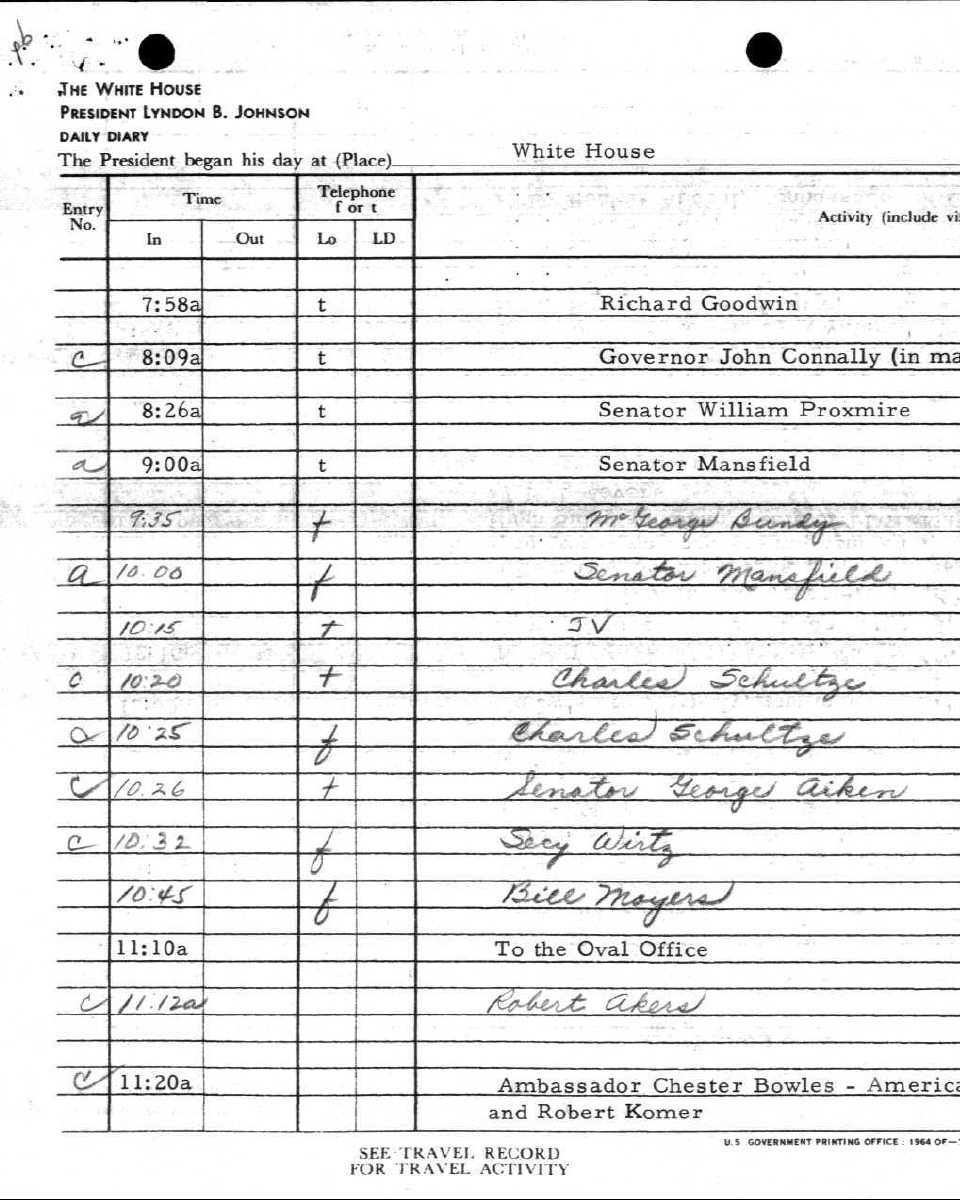 THE WHITE HOUSE
PRESIDENT LYNDON B. JOHNSON
DAILY DIARY
The President began his day at (Place) White House
Entry No. Time Telephone f or t Activity (include vi
In Out Lo LD
7:58a t Richard Goodwin
c 8:09a t Governor John Connally (in ma
a 8:26a t Senator William Proxmire
a 9:00a t Senator Mansfield
9:35 t McGeorge Bundy
a 10:00 f Senator Mansfield
10:15 t JV
c 10:20 t Charles Schultze
a 10:25 f Charles Schultze
c 10:26 t Senator George Aiken
c 10:32 f Secy Wirtz
10:45 f Bill Moyers
11:10a To the Oval Office
c 11:12a Robert Akers
c 11:20a Ambassador Chester Bowles - America
and Robert Komer
U.S. GOVERNMENT PRINTING OFFICE : 1964 OF—
SEE TRAVEL RECORD
FOR TRAVEL ACTIVITY